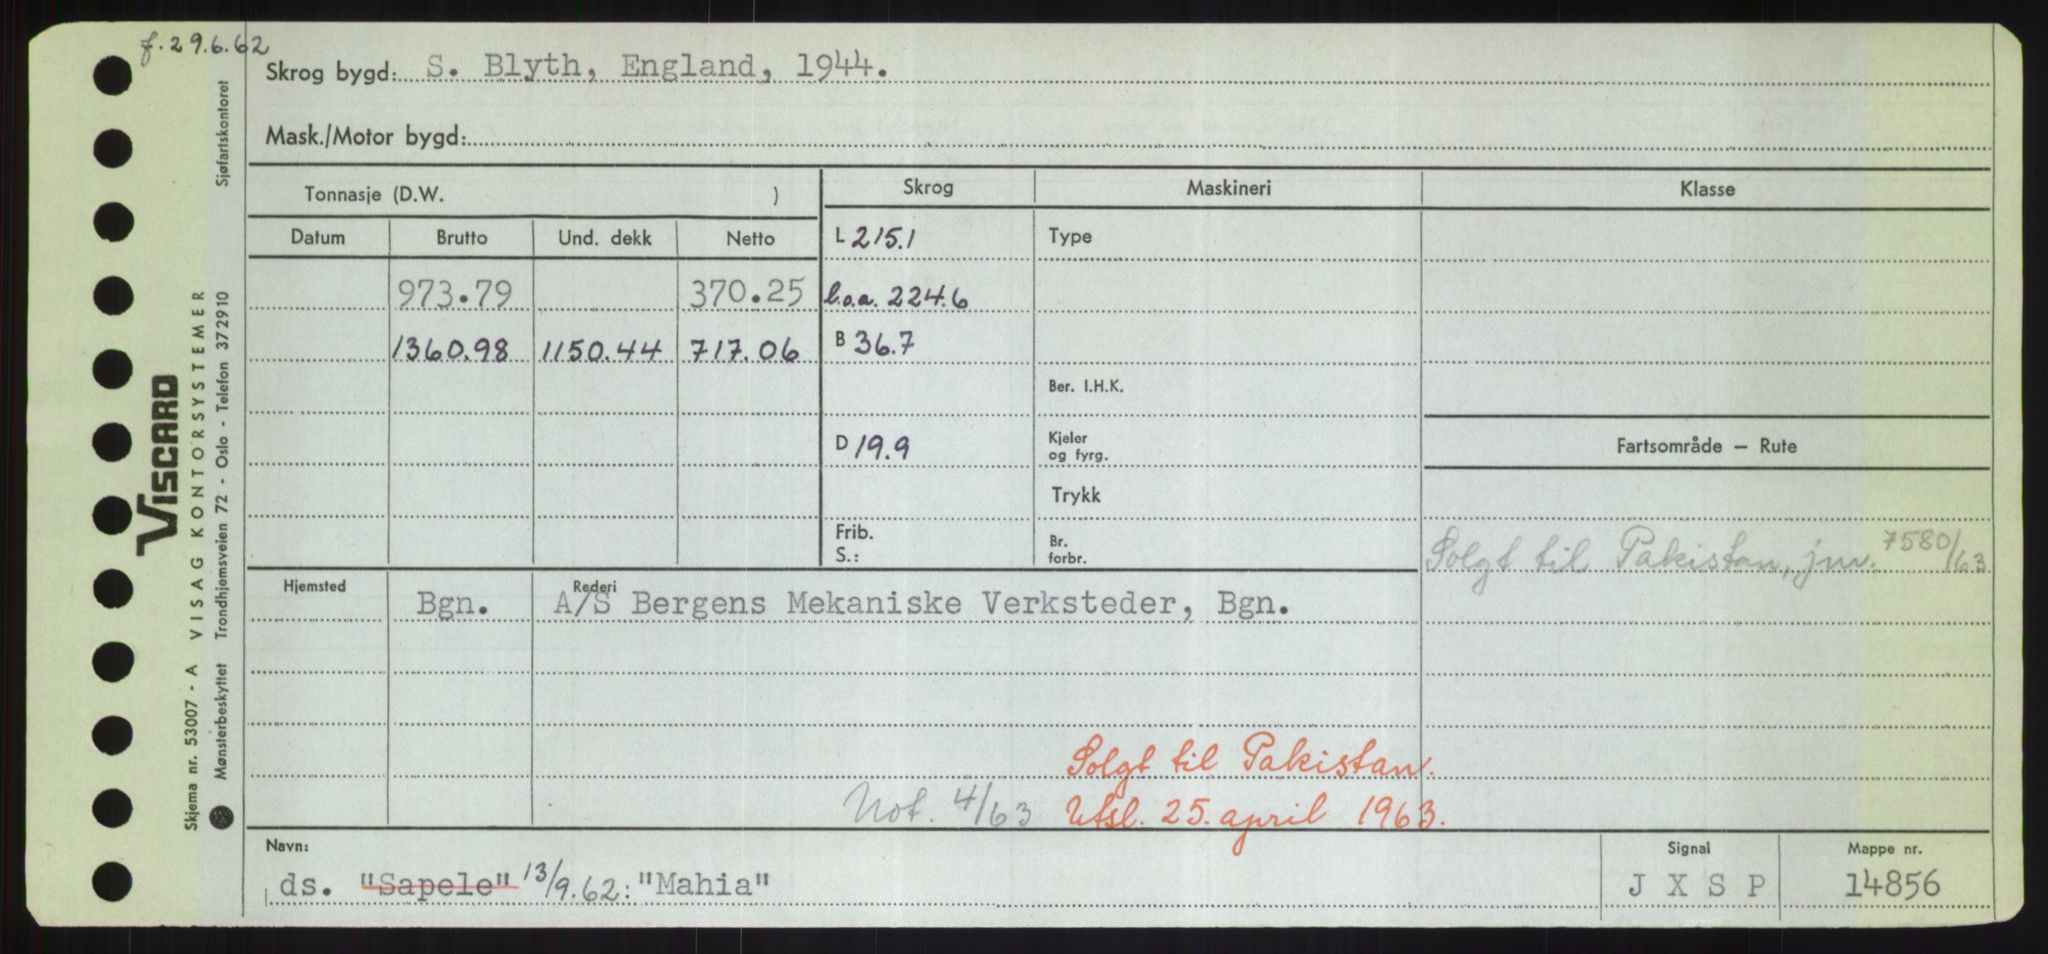 f. 29.6.62
Skrog bygd: S. Blyth, England, 1944.
Mask./Motor bygd:
Tonnasje (D.W. )
Skrog Maskineri Klasse
Datum Brutto Und. dekk Netto
L 215.1 Type
973.79 370.25 l.o.a. 224.6
1360.98 1150.44 717.06 B 36.7
Ber. I.H.K.
D 19.9 Kjeler og fyrg.
Fartsområde — Rute
Trykk
Frib. S.: Br. forbr.
Solgt til Pakistan, jnr. 7580/63
Hjemsted Rederi
Bgn. A/S Bergens Mekaniske Verksteder, Bgn.
Solgt til Pakistan.
Not. 4/63 Utsl. 25. april 1963.
Navn: Signal Mappe nr.
ds. "Sapele" 13/9.62: "Mahia" J X S P 14856
VISCARD
Skjema nr. 53007 - A VISAG KONTORSYSTEMER
Mønsterbeskyttet Trondhjemsveien 72 - Oslo - Telefon 372910 Sjøfartskontoret